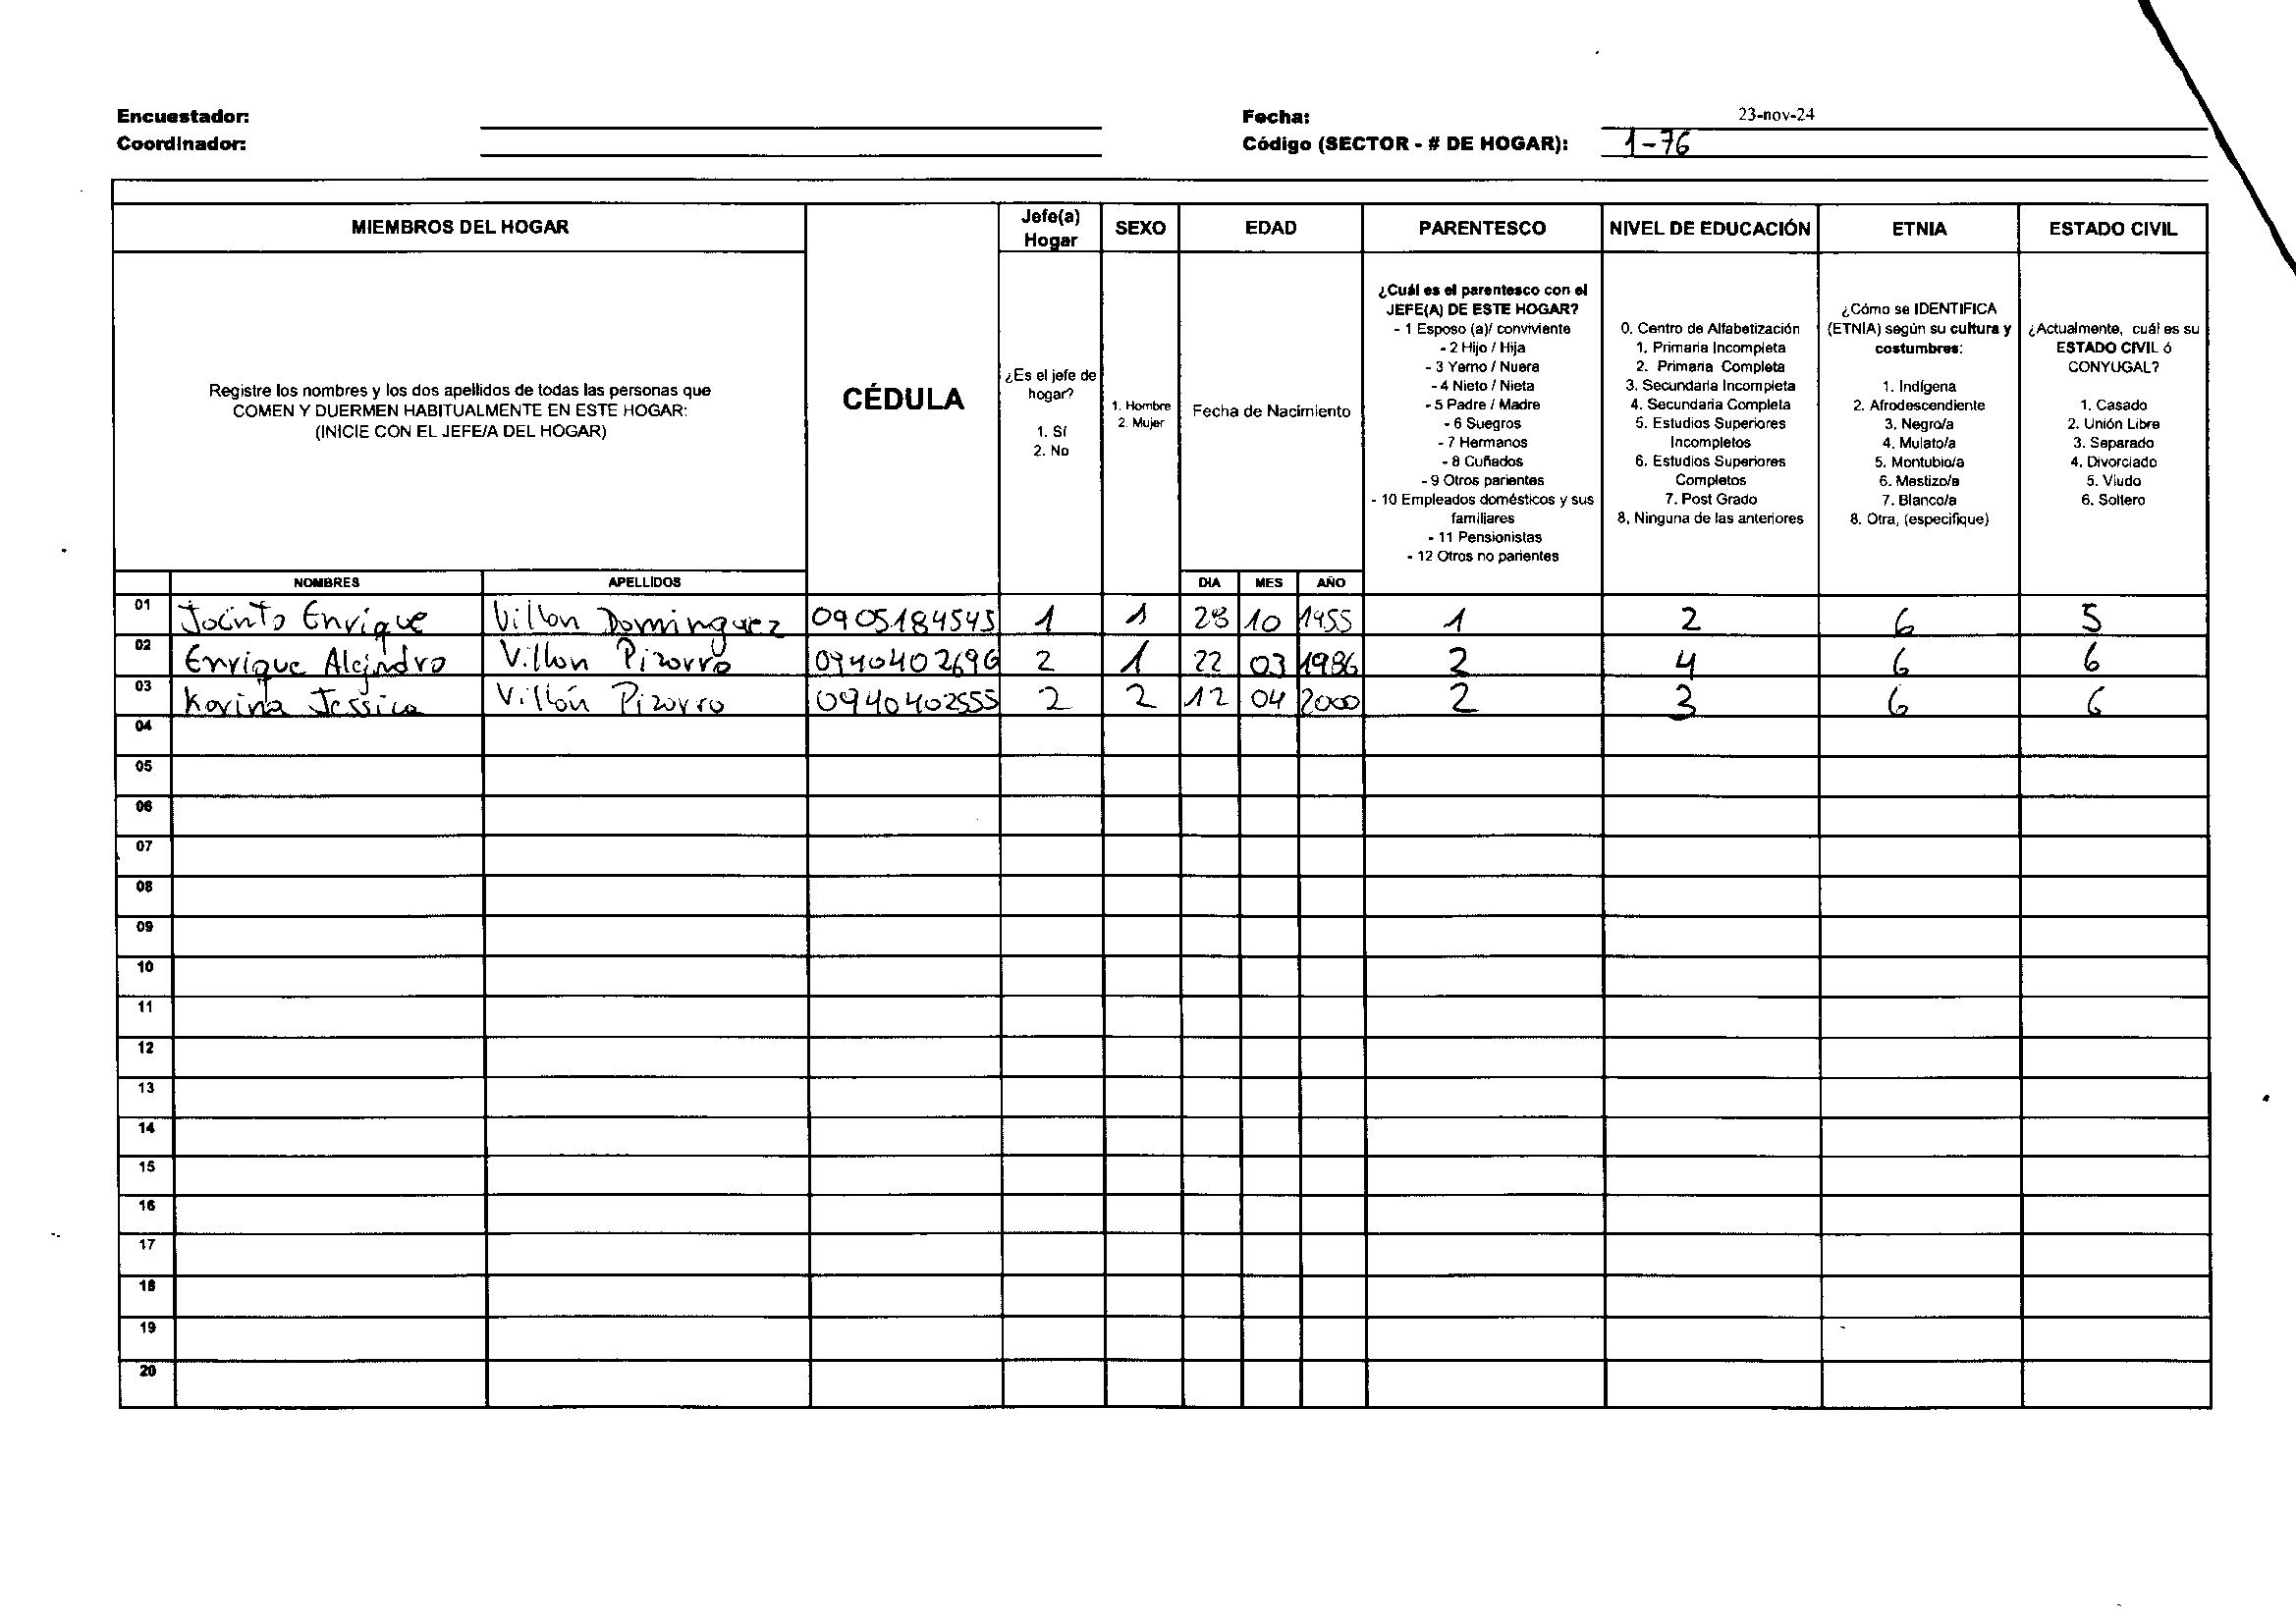 Encuestador:
Fecha: 23-nov-24
Coordinador:
Código (SECTOR - # DE HOGAR): 1-76
MIEMBROS DEL HOGAR
CÉDULA
Jefe(a) Hogar
SEXO
EDAD
PARENTESCO
NIVEL DE EDUCACIÓN
ETNIA
ESTADO CIVIL
Registre los nombres y los dos apellidos de todas las personas que
COMEN Y DUERMEN HABITUALMENTE EN ESTE HOGAR:
(INICIE CON EL JEFE/A DEL HOGAR)
¿Es el jefe de
hogar?
1. Sí
2. No
1. Hombre
2. Mujer
Fecha de Nacimiento
¿Cuál es el parentesco con el
JEFE(A) DE ESTE HOGAR?
- 1 Esposo (a)/ conviviente
- 2 Hijo / Hija
- 3 Yerno / Nuera
- 4 Nieto / Nieta
- 5 Padre / Madre
- 6 Suegros
- 7 Hermanos
- 8 Cuñados
- 9 Otros parientes
- 10 Empleados domésticos y sus
familiares
- 11 Pensionistas
- 12 Otros no parientes
0. Centro de Alfabetización
1. Primaria Incompleta
2. Primaria Completa
3. Secundaria Incompleta
4. Secundaria Completa
5. Estudios Superiores
Incompletos
6. Estudios Superiores
Completos
7. Post Grado
8. Ninguna de las anteriores
¿Cómo se IDENTIFICA
(ETNIA) según su cultura y
costumbres:
1. Indígena
2. Afrodescendiente
3. Negro/a
4. Mulato/a
5. Montubio/a
6. Mestizo/a
7. Blanco/a
8. Otra, (especifique)
¿Actualmente, cuál es su
ESTADO CIVIL ó
CONYUGAL?
1. Casado
2. Unión Libre
3. Separado
4. Divorciado
5. Viudo
6. Soltero
NOMBRES APELLIDOS DIA MES AÑO
01 Jacinto Enrique Villon Dominguez 0905184545 1 1 28 10 1955 1 2 6 5
02 Enrique Alejandro Villon Pizarro 0940402696 2 1 22 03 1986 2 4 6 6
03 Karina Jessica Villón Pizarro 0940402555 2 2 12 04 2000 2 3 6 6
04
05
06
07
08
09
10
11
12
13
14
15
16
17
18
19
20